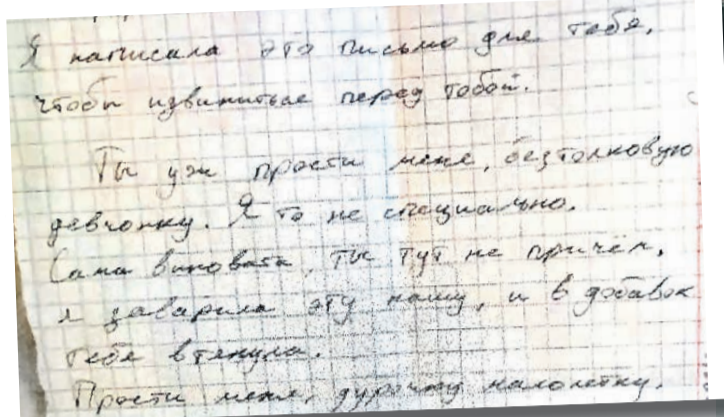 Я написала это письмо для тебя,
чтобы извинитьсе перед тобой.
Ты уж прости меня, безтолковую
девчонку. Я то не специально.
Сама виновата, ты тут не причём,
я заварила эту кашу, и в добавок
тебя втянула.
Прости меня, дурочку малолетку.